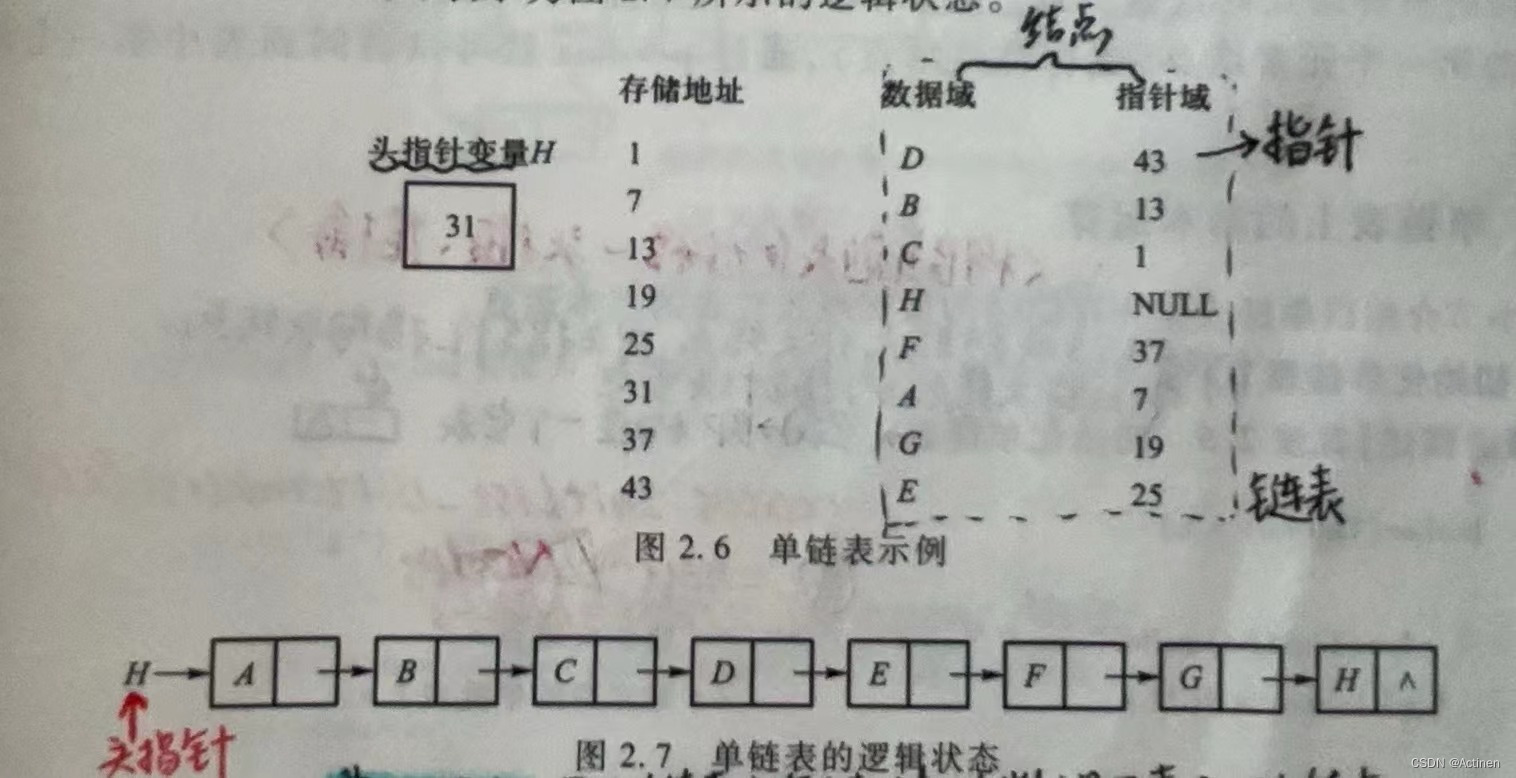 所示的逻辑状态。
结点
存储地址 数据域 指针域
头指针变量H 1 D 43 →指针
7 B 13
31
13 C 1
19 H NULL
25 F 37
31 A 7
37 G 19
43 E 25 链表
图 2.6 单链表示例
H A B C D E F G H ∧
头指针
图 2.7 单链表的逻辑状态
CSDN @Actinen